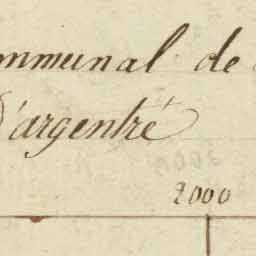 ommunal de
D'argentré
2000